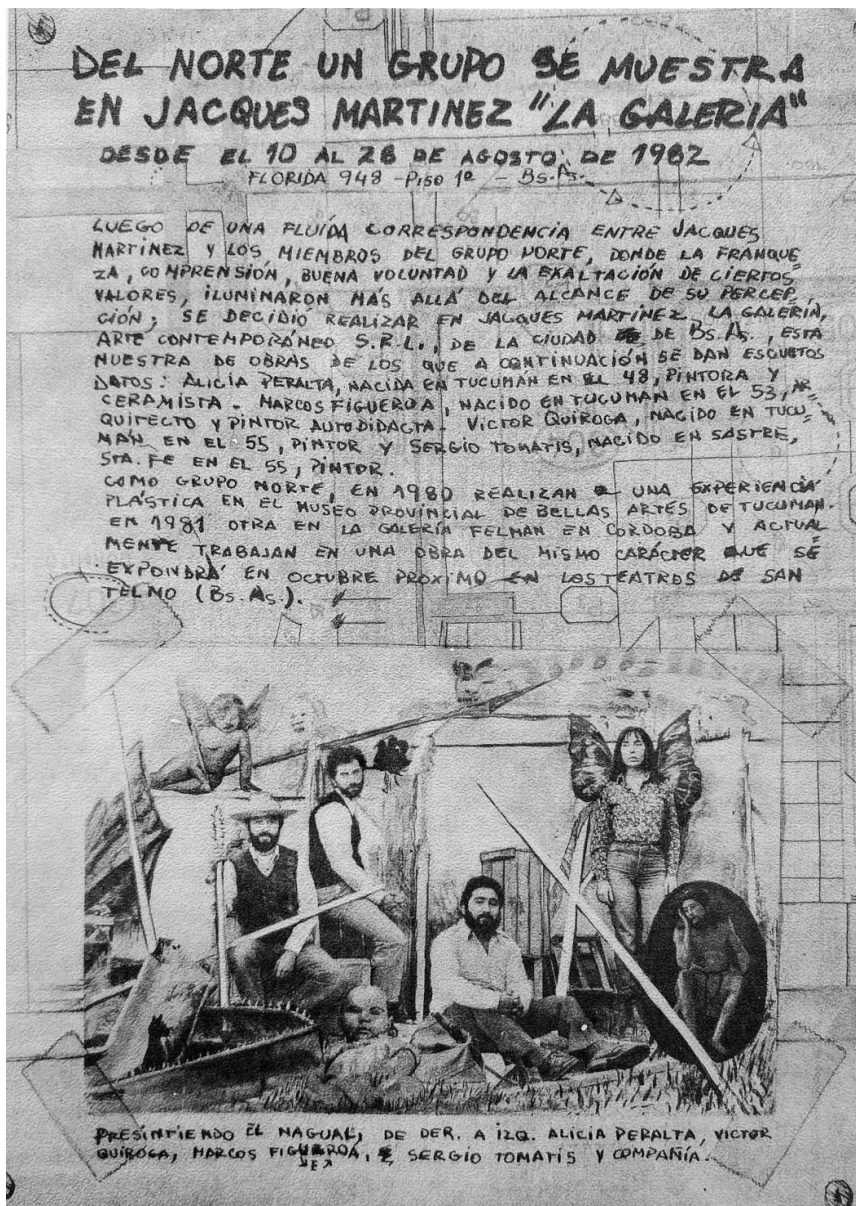 DEL NORTE UN GRUPO SE MUESTRA
EN JACQUES MARTINEZ "LA GALERIA"
DESDE EL 10 AL 28 DE AGOSTO DE 1982
FLORIDA 948 - PISO 1º - Bs. As.
LUEGO DE UNA FLUÍDA CORRESPONDENCIA ENTRE JACQUES
MARTINEZ Y LOS MIEMBROS DEL GRUPO NORTE, DONDE LA FRANQUE
ZA, COMPRENSIÓN, BUENA VOLUNTAD Y LA EXALTACIÓN DE CIERTOS
VALORES, ILUMINARON MÁS ALLÁ DEL ALCANCE DE SU PERCEP
CIÓN; SE DECIDIÓ REALIZAR EN JACQUES MARTINEZ, LA GALERIA,
ARTE CONTEMPORÁNEO S.R.L., DE LA CIUDAD DE Bs. As., ESTA
MUESTRA DE OBRAS DE LOS QUE A CONTINUACIÓN SE DAN ESCUETOS
DATOS: ALICIA PERALTA, NACIDA EN TUCUMÁN EN EL 48, PINTORA Y
CERAMISTA - MARCOS FIGUEROA, NACIDO EN TUCUMÁN EN EL 53, AR
QUITECTO Y PINTOR AUTODIDACTA - VICTOR QUIROGA, NACIDO EN TUCU
MÁN EN EL 55, PINTOR Y SERGIO TOMATIS, NACIDO EN SASTRE,
STA. FE EN EL 55, PINTOR.
COMO GRUPO NORTE, EN 1980 REALIZAN UNA EXPERIENCIA
PLÁSTICA EN EL MUSEO PROVINCIAL DE BELLAS ARTES DE TUCUMAN.
EN 1981 OTRA EN LA GALERÍA FELMAN EN CORDOBA Y ACTUAL
MENTE TRABAJAN EN UNA OBRA DEL MISMO CARÁCTER QUE SÉ
EXPONDRÁ EN OCTUBRE PROXIMO EN LOS TEATROS DE SAN
TELMO (Bs. As.).
PRESINTIENDO EL NAGUAL, DE DER. A IZQ. ALICIA PERALTA, VICTOR
QUIROGA, MARCOS FIGUEROA, SERGIO TOMATIS Y COMPAÑÍA.